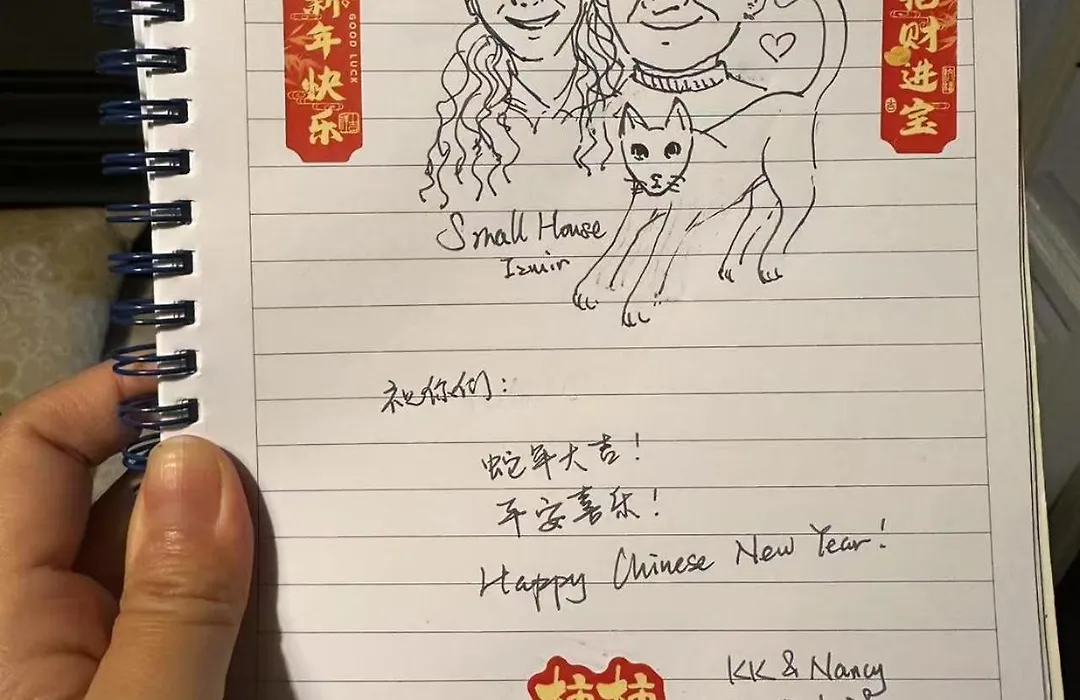 新年快乐
GOOD LUCK
招财进宝
Small House
Izmir
祝你们：
蛇年大吉！
平安喜乐！
Happy Chinese New Year!
KK & Nancy